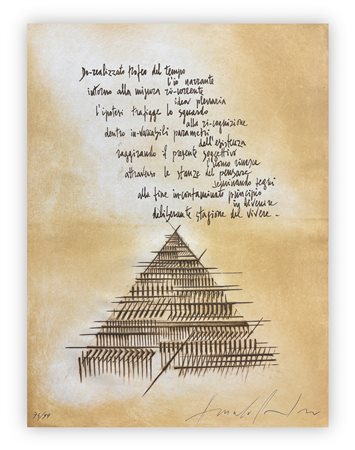 De-realizzato trofeo del tempo
l'io narrante
intorno alla misura ri-corrente
idea plenaria
l'ipotesi trafigge lo sguardo
alla ri-cognizione
dentro in-variabili parametri
dell'esistenza
raggirando il presente soggettivo
l'uomo rinasce
attraverso le stanze del pensare
seminando segni
alla fine in-contaminato principio
in divenire
deliberante stagione del vivere -